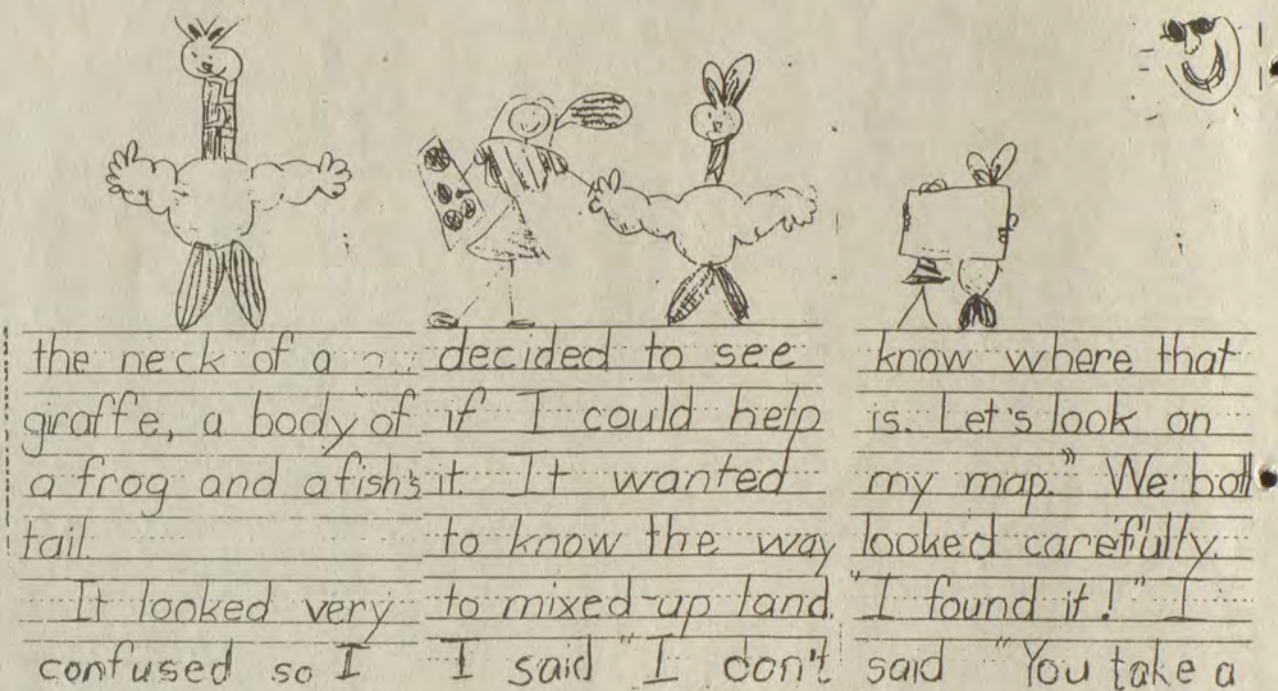 the neck of a
giraffe, a body of
a frog and a fish's
tail.
It looked very
confused so I
decided to see
if I could help
it. It wanted
to know the way
to mixed-up land.
I said "I don't
know where that
is. Let's look on
my map." We both
looked carefully.
"I found it!" I
said "You take a